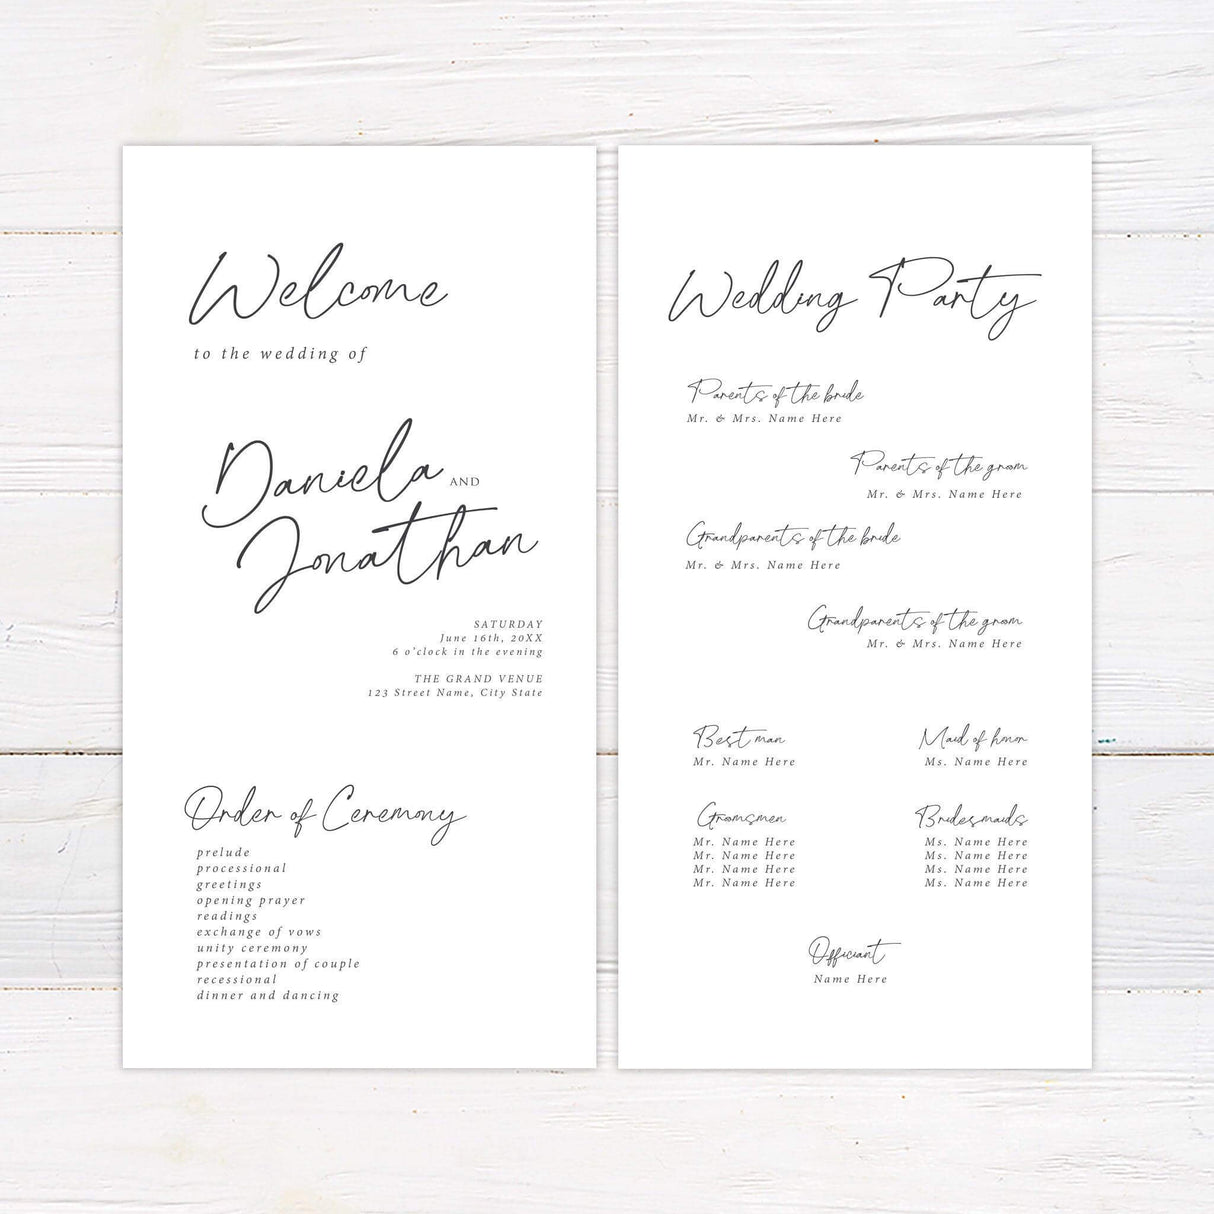 Welcome
to the wedding of
Daniela AND
Jonathan
SATURDAY
June 16th, 20XX
6 o'clock in the evening
THE GRAND VENUE
123 Street Name, City State
Order of Ceremony
prelude
processional
greetings
opening prayer
readings
exchange of vows
unity ceremony
presentation of couple
recessional
dinner and dancing
Wedding Party
Parents of the bride
Mr. & Mrs. Name Here
Parents of the groom
Mr. & Mrs. Name Here
Grandparents of the bride
Mr. & Mrs. Name Here
Grandparents of the groom
Mr. & Mrs. Name Here
Best man
Mr. Name Here
Maid of honor
Ms. Name Here
Groomsmen
Mr. Name Here
Mr. Name Here
Mr. Name Here
Mr. Name Here
Bridesmaids
Ms. Name Here
Ms. Name Here
Ms. Name Here
Ms. Name Here
Officiant
Name Here